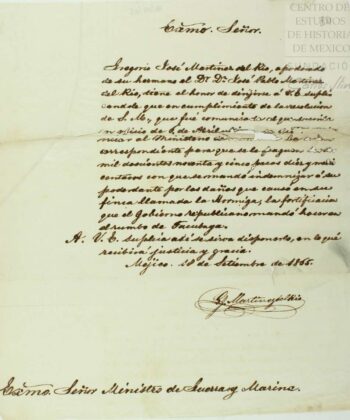 CENTRO DE
ESTUDIOS
DE HISTORIA
DE MEXICO
Exmo. Señor.
Gregorio José Martinez del Rio, apoderado
de su hermano el Dr. Dn. José Pablo Martinez
del Rio, tiene el honor de dirijirse á V.E. supli
candole que en cumplimiento de la resolucion
de S.M. que fué comunicada al que suscribe
en oficio de 6 de Abril
nicar al Ministerio
correspondiente para que se le paguen
mil doscientos noventa y cinco pesos diez y seis
centavos con que se mandó indemnizar á su
poderdante por los daños que causó en su
finca llamada la Hormiga, la fortificacion
que el Gobierno republicano mandó hacer en
el rumbo de Tacubaya.
A. V.E. suplica asi se sirva disponerlo, en lo qué
recibirá justicia y gracia.
Mejico. 28 de Setiembre de 1865.
G. Martinez del Rio
Exmo. Señor Ministro de Guerra y Marina.